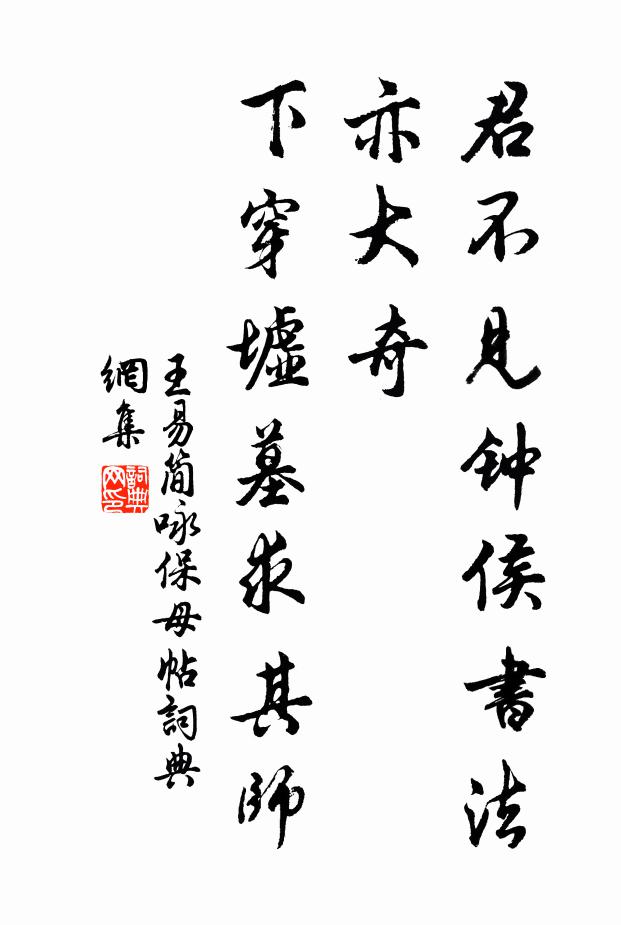 君不见钟侯書法
亦大奇
下穿墟墓求其師
王易简咏保母帖詞典
網集
詞典
网印